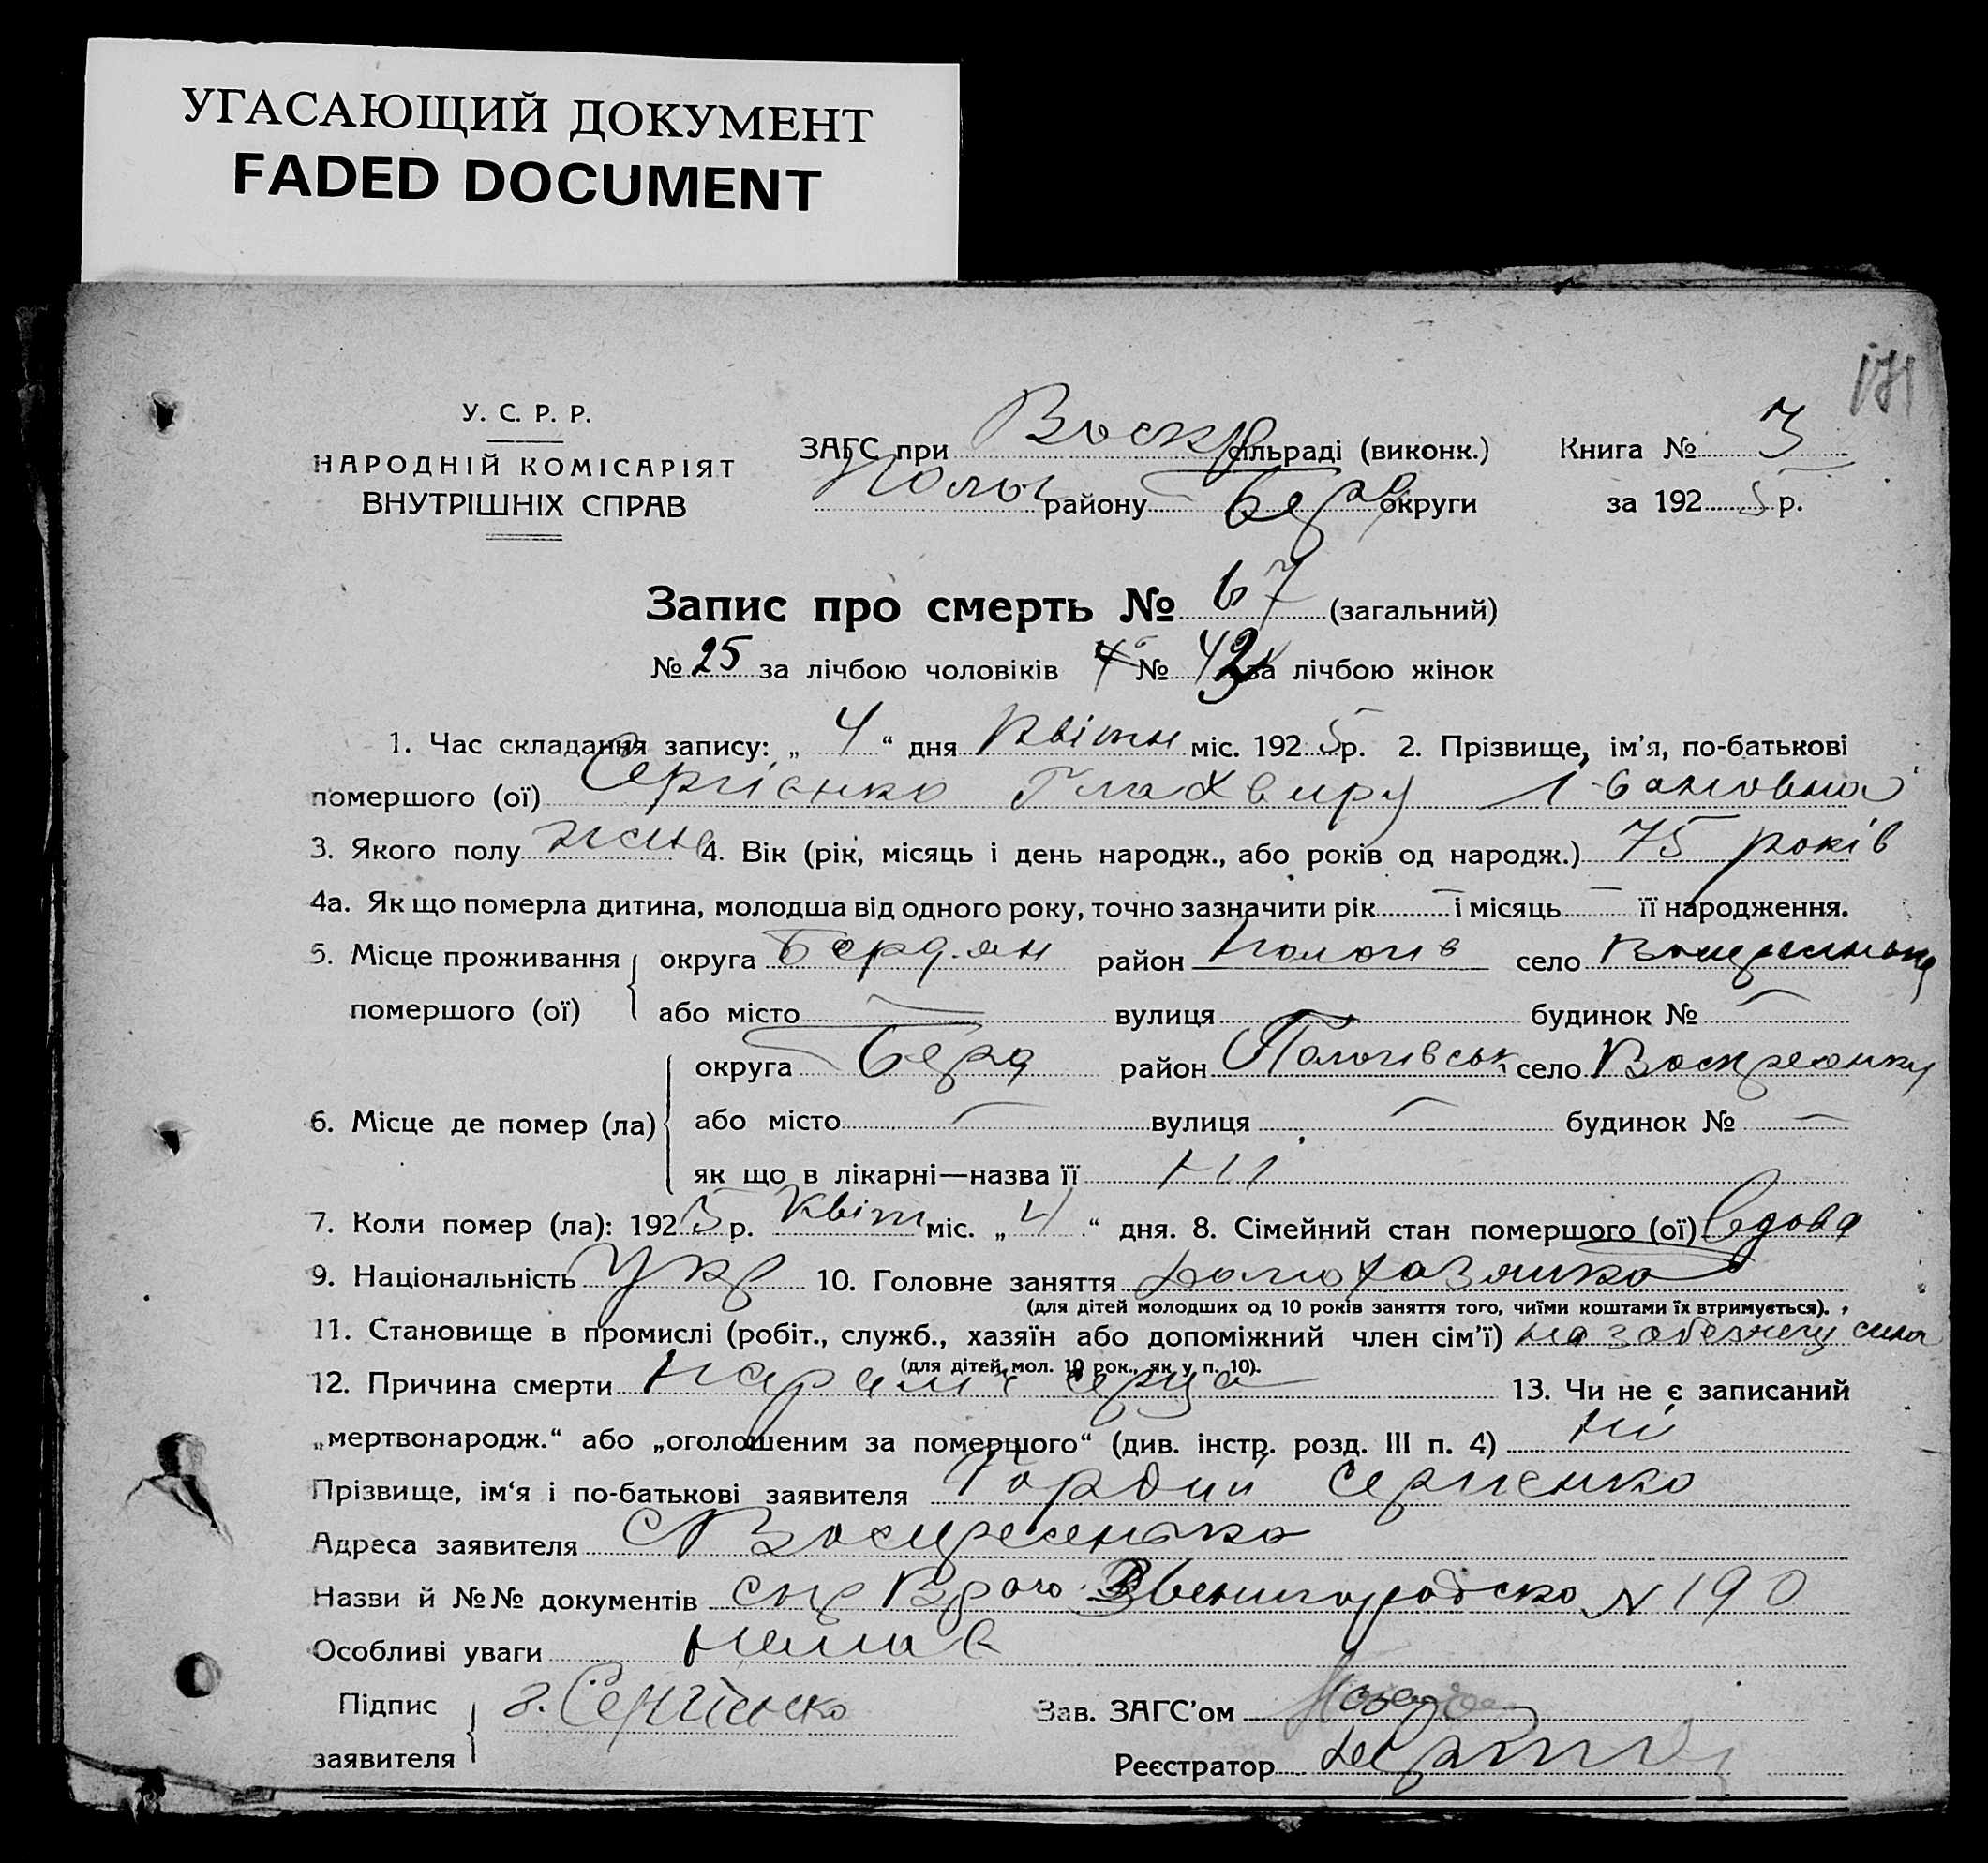 УГАСАЮЩИЙ ДОКУМЕНТ
FADED DOCUMENT
171
У. С. Р. Р.
НАРОДНІЙ КОМІСАРІЯТ
ВНУТРІШНІХ СПРАВ
ЗАГС при Воскр сільраді (виконк.)
Полог району Берд округи
Книга № 3
за 1925 р.
Запис про смерть № 67 (загальний)
№ 25 за лічбою чоловіків № 42 за лічбою жінок
1. Час складання запису: „ 4 “ дня Квітн міс. 1925 р. 2. Прізвище, ім’я, по-батькові
помершого (ої) Сергієнко Глахвиру Івановна
3. Якого полу жін 4. Вік (рік, місяць і день народж., або років од народж.) 75 років
4а. Як що померла дитина, молодша від одного року, точно зазначити рік — і місяць — її народження.
5. Місце проживання помершого (ої) округа Бердян район Пологів село Воскресенька
або місто — вулиця — будинок № —
6. Місце де помер (ла) округа Берд район Пологівськ село Воскресенку
або місто — вулиця — будинок № —
як що в лікарні—назва її Ні
7. Коли помер (ла): 1925 р. Квітн міс. „ 4 “ дня. 8. Сімейний стан помершого (ої) Вдова
9. Національність Укр 10. Головне заняття домохазяйка
(для дітей молодших од 10 років заняття того, чиїми коштами їх втримується).
11. Становище в промислі (робіт., служб., хазяїн або допоміжний член сім’ї) на забезпеч сина
(для дітей мол. 10 рок., як у п. 10).
12. Причина смерти Параліч серця 13. Чи не є записаний
„мертвонародж.“ або „оголошеним за помершого“ (див. інстр. розд. III п. 4) Ні
Прізвище, ім‘я і по-батькові заявителя Гордий Сергієнко
Адреса заявителя с Воскресенька
Назви й №№ документів Звенигородско N 190
Особливі уваги Немає
Підпис заявителя г. Сергієнко
Зав. ЗАГС’ом
Реєстратор